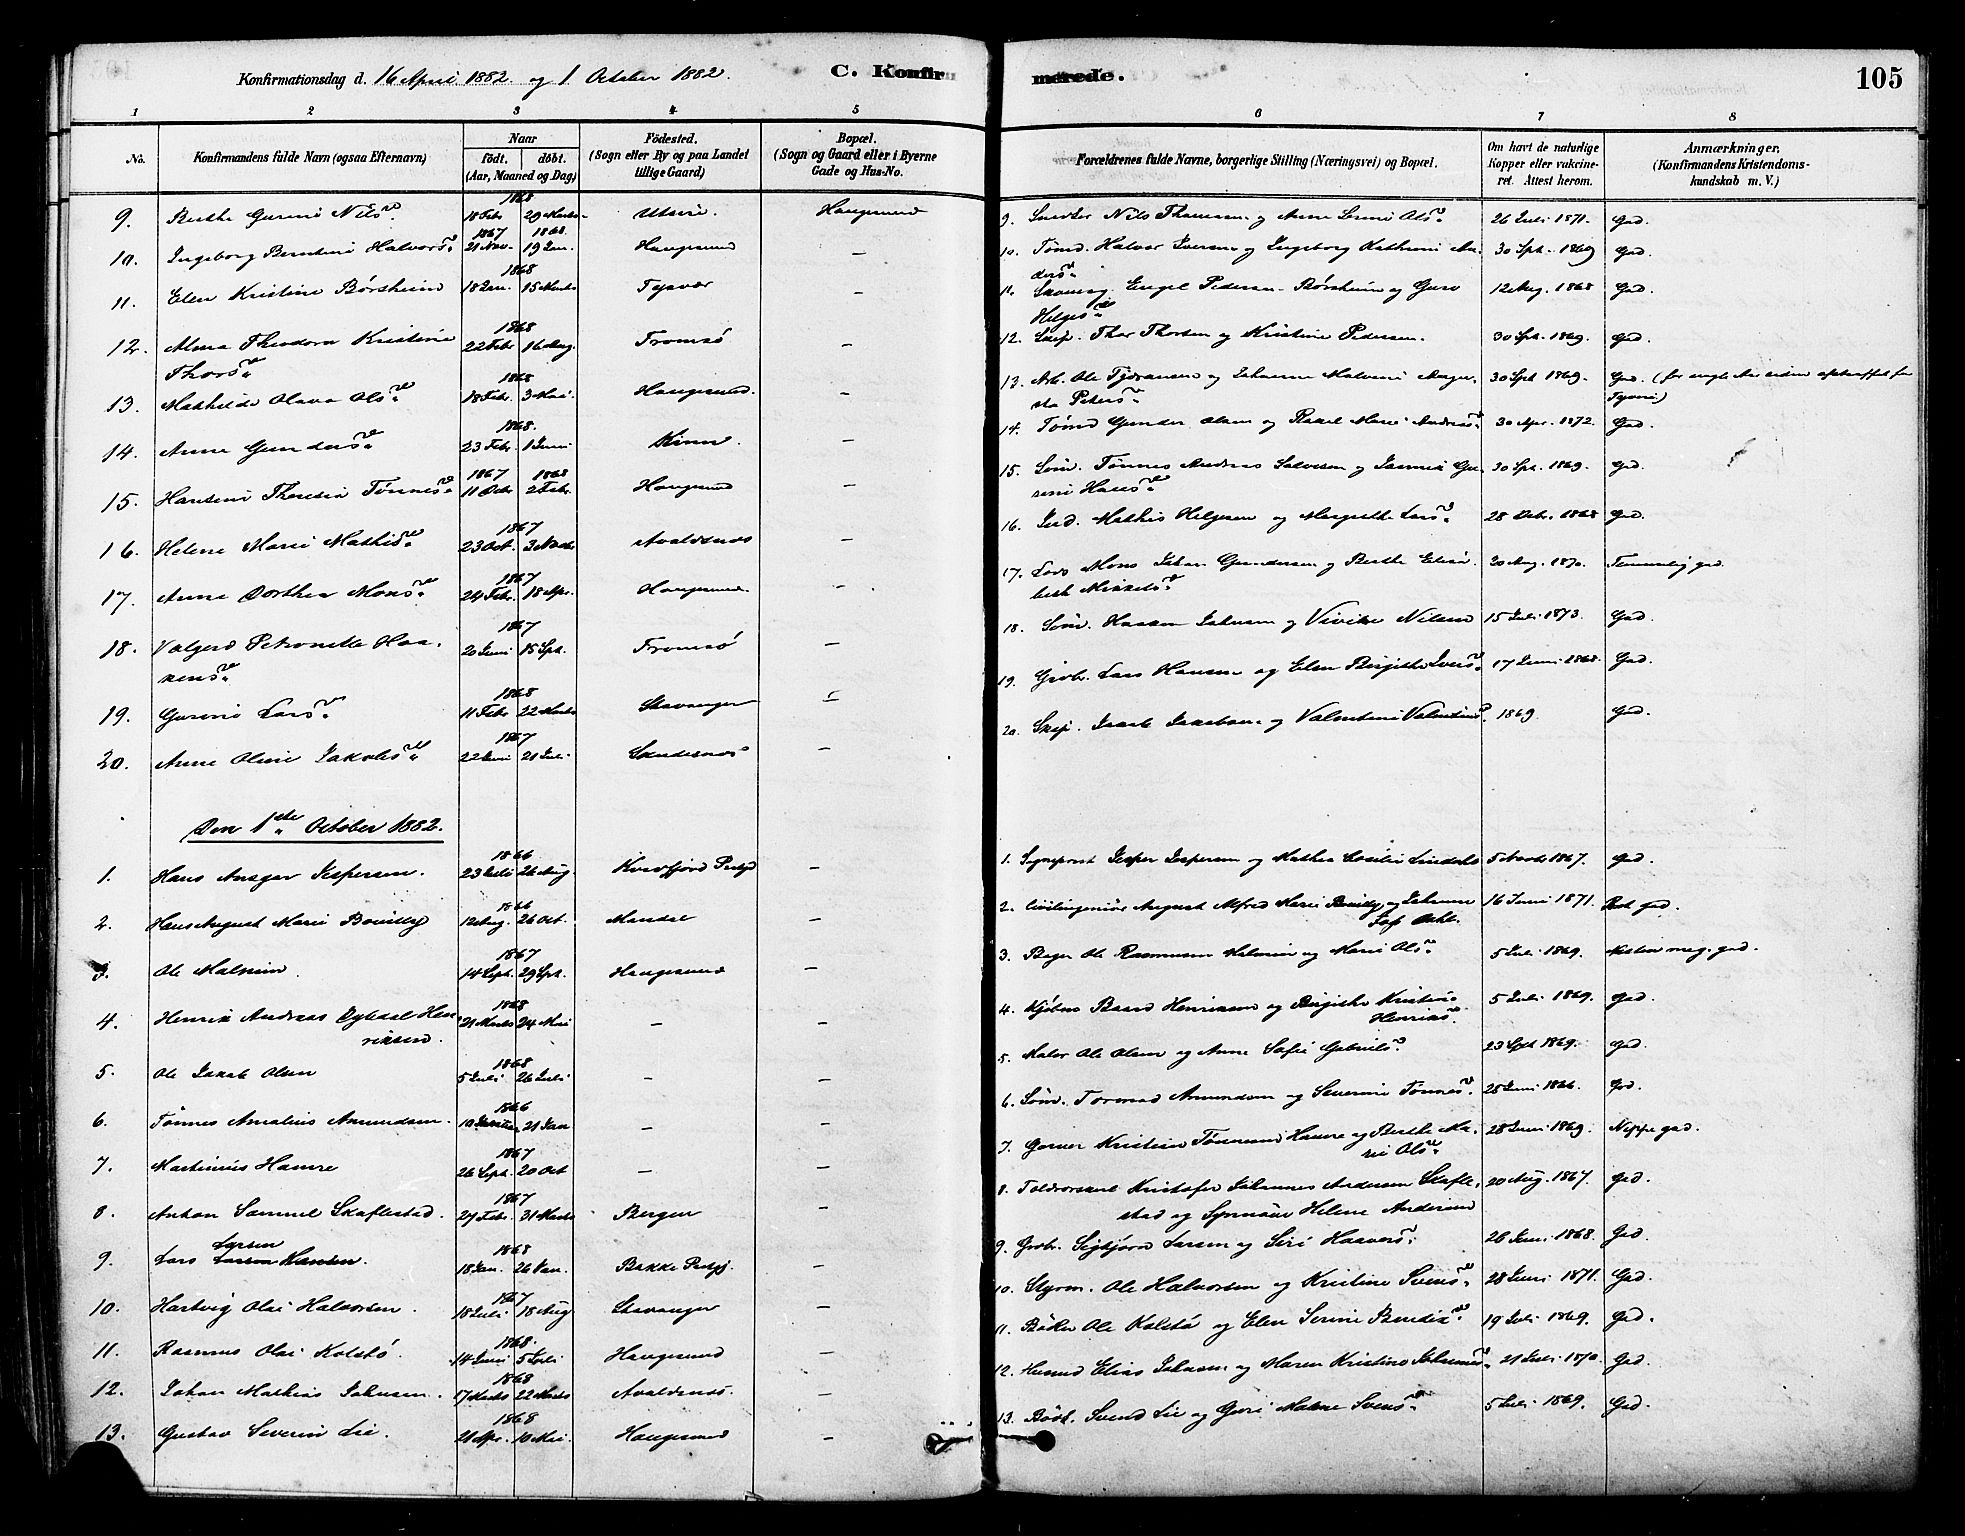 Konfirmationsdag d. 16 April 1882. og 1 October 1882.
C. Konfir
merede.
105
1 2 3 4 5
6 7 8
No.
Konfirmandens fulde Navn (ogsaa Efternavn)
Naar
født. døbt.
(Aar, Maaned og Dag)
Fødested.
(Sogn eller By og paa Landet
tillige Gaard)
Bopæl.
(Sogn og Gaard eller i Byerne
Gade og Hus-No.
Forældrenes fulde Navne, borgerlige Stilling (Næringsvei) og Bopæl.
Om havt de naturlige
Kopper eller vakcine-
ret. Attest herom.
Anmærkninger.
(Konfirmandens Kristendoms-
kundskab m. V.)
9. Berthe Gurine Nilsd. 1868 18 Febr 29 Marts Utsire. Haugesund
10. Ingeborg Berntine Halvorsd. 1867 21 Nov. 1868 19 Jan. Haugesund —
11. Elen Kristine Børsheim 1868 18 Jan. 15 Marts Tysvær —
12. Alma Theodora Kristine 1868 22 Febr 16 Aug. Tromsø —
Thorsd.
13. Mathilde Olava Olsd. 1868 18 Febr. 3 Mai. Haugesund. —
14. Anne Gundersd. 1868 23 Febr. 1 Juni Kinn. —
15. Hansine Theresia Tønnesd. 1867 11 Octr 1868 2 Febr. Haugesund —
16. Helene Marie Mathisd. 1867 23 Oct. 3 Novbr. Avaldsnes —
17. Anne Dorthea Monsd. 1867 24 Febr. 18 Apr. Haugesund. —
18. Valgerd Petronelle Haa- 1867 20 Juni 15 Spt. Tromsø —
kensd.
19. Gurine Larsd. 1868 11 Febr 22 Marts Stavanger —
20. Anne Oline Jakobsd. 1867 22 Juni 21 Juli Skudesnes —
Den 1ste October 1882.
1. Hans Ansgar Jespersen. 1866 23 Juli 26 Aug. Kvæfjord Prstgj —
2. Hans August Marie 1866 12 Aug. 26 Oct. Mandal —
3. Ole Malmin. 1867 14 Sept. 29 Spt. Haugesund —
4. Henrik Andreas Dybdal Hen 1868 21 Marts 24 Mai — —
riksen.
5. Ole Jakob Olsen 1868 5 Juli 26 Juli — —
6. Tønnes Amalius Amundsen. 1866 21 Jan — —
7. Martinius Hamre 1867 26 Sept. 20 Oct — —
8. Anton Samuel Skaflestad. 1867 27 Febr. 31 Marts Bergen —
9. Lars Larsen Hansen. 1868 18 Jan. 26 Jan. Bakke Prstgj. —
10. Hartvig Olai Halvorsen. 1867 18 Juli 18 Aug Stavanger —
11. Rasmus Olai Kolstø. 1868. 14 Juni 5 Juli Haugesund —
12. Johan Mathias Johnsen. 1868 17 Marts 22 Marts Avaldsnes. —
13. Gustav Severin Lie 1868 21 Apr. 10 Mai. Haugesund —
9. Snedker Nils Thomsen og Anne Serine Olsd. 26 Juli 1871. God.
10. Tømd. Halvor Iversen og Ingeborg Kathrine An- 30 Spt. 1869 God.
dersd.
11. Skomag. Engel Pedersen Børsheim og Guro 12 Aug. 1868 God.
Helgesd.
12. Skip. Thor Thorsen og Kristine Pedersen. 30 Spt. 1869. God.
13. Arb. Ole Tjøransen og Johanne Malene Augu- 30 Spt 1869. God.
sta Petersd.
14. Tømd Gunder Olsen og Rakel Marie Andreasd. 30 Apr. 1872. God.
15. Søm. Tønnes Andreas Salvesen og Gu- 30 Spt. 1869. God.
rine Hansd.
16. Mathis Helgesen og Margrethe Larsd. 28 1868 God.
17. Lods Mons Johan Gundersen og Berthe Elisa- 20 Aug. 1870. Temmelig god.
beth Mikkelsd.
18. Søm. Haaken Johnsen og Vivike Nilsen 15 Juli 1873. God.
19. Grbr. Lars Hansen og Elen Birgithe Iversd. 17 Juni 1868. God.
20. Skip. Jacob Jakobsen og Valentine Valentinsd. 1869 God.
1. Sogneprest Jesper Jespersen og Mathea Cecilie 5 Novb 1867. God.
2. Civilingeniør August Alfred Marie og Johanne 16 Juni 1871. god.
3. Bager Ole Rasmussen Malmin og Marie Olsd. 5 Juli 1869. Næsten meg. god.
4. Kjøbm Baard Henriksen og Birgithe Kristine 5 Juli 1869. God.
Henriksd.
5. Maler Ole Olsen og Anne Sofie Gabrielsd. 23 Spt 1869. God.
6. Søm. Tormod Amundsen og Severine Tønnesd. 25 Juni 1866. God.
7. Garver Kristian Tønnesen Hamre og Berthe Ma- 28 Juni 1869. Neppe god.
rie Olsd.
8. Kristofer Johannes Andersen Skafle- 20 Aug. 1867. God.
stad og Synnøve Helene Andersen
9. Grbr. Sigbjørn Larsen og Siri Haaversd. 26 Juni 1868. God.
10. Styrm. Ole Halvorsen og Kristine Svensd. 28 Juni 1871. God.
11. Bødker Ole Kolstø og Elen Serine Bendixd. 19 Juli 1869. God.
12. Husmd Elias Johnsen og Maren Kristine Johannesd. 21 Juli 1870. God.
13. Bødk. Svend Lie og Guri Malene Svensd. 5 Juli 1869. God.